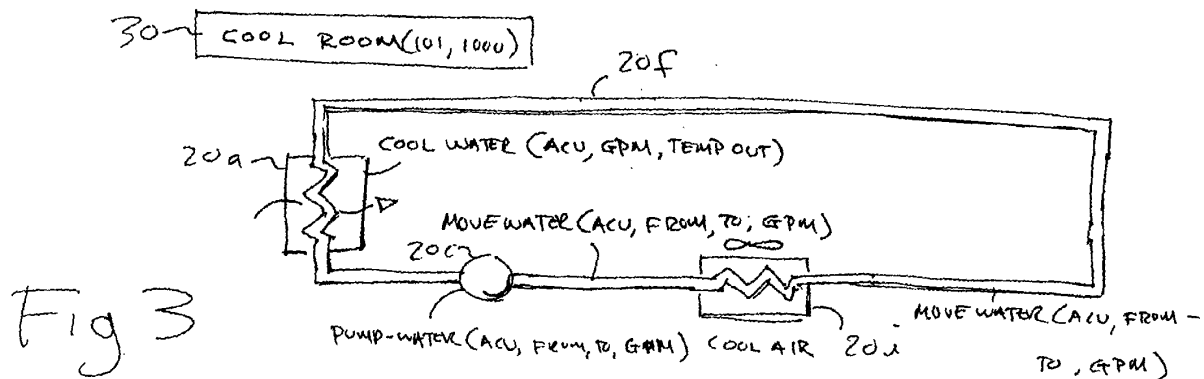 30 COOL ROOM(101, 1000)
20f
20a COOL WATER (ACU, GPM, TEMP OUT)
MOVE WATER (ACU, FROM, TO, GPM)
20c
Fig 3
PUMP-WATER (ACU, FROM, TO, GPM) COOL AIR 20i
MOVE WATER (ACU, FROM -
TO, GPM)